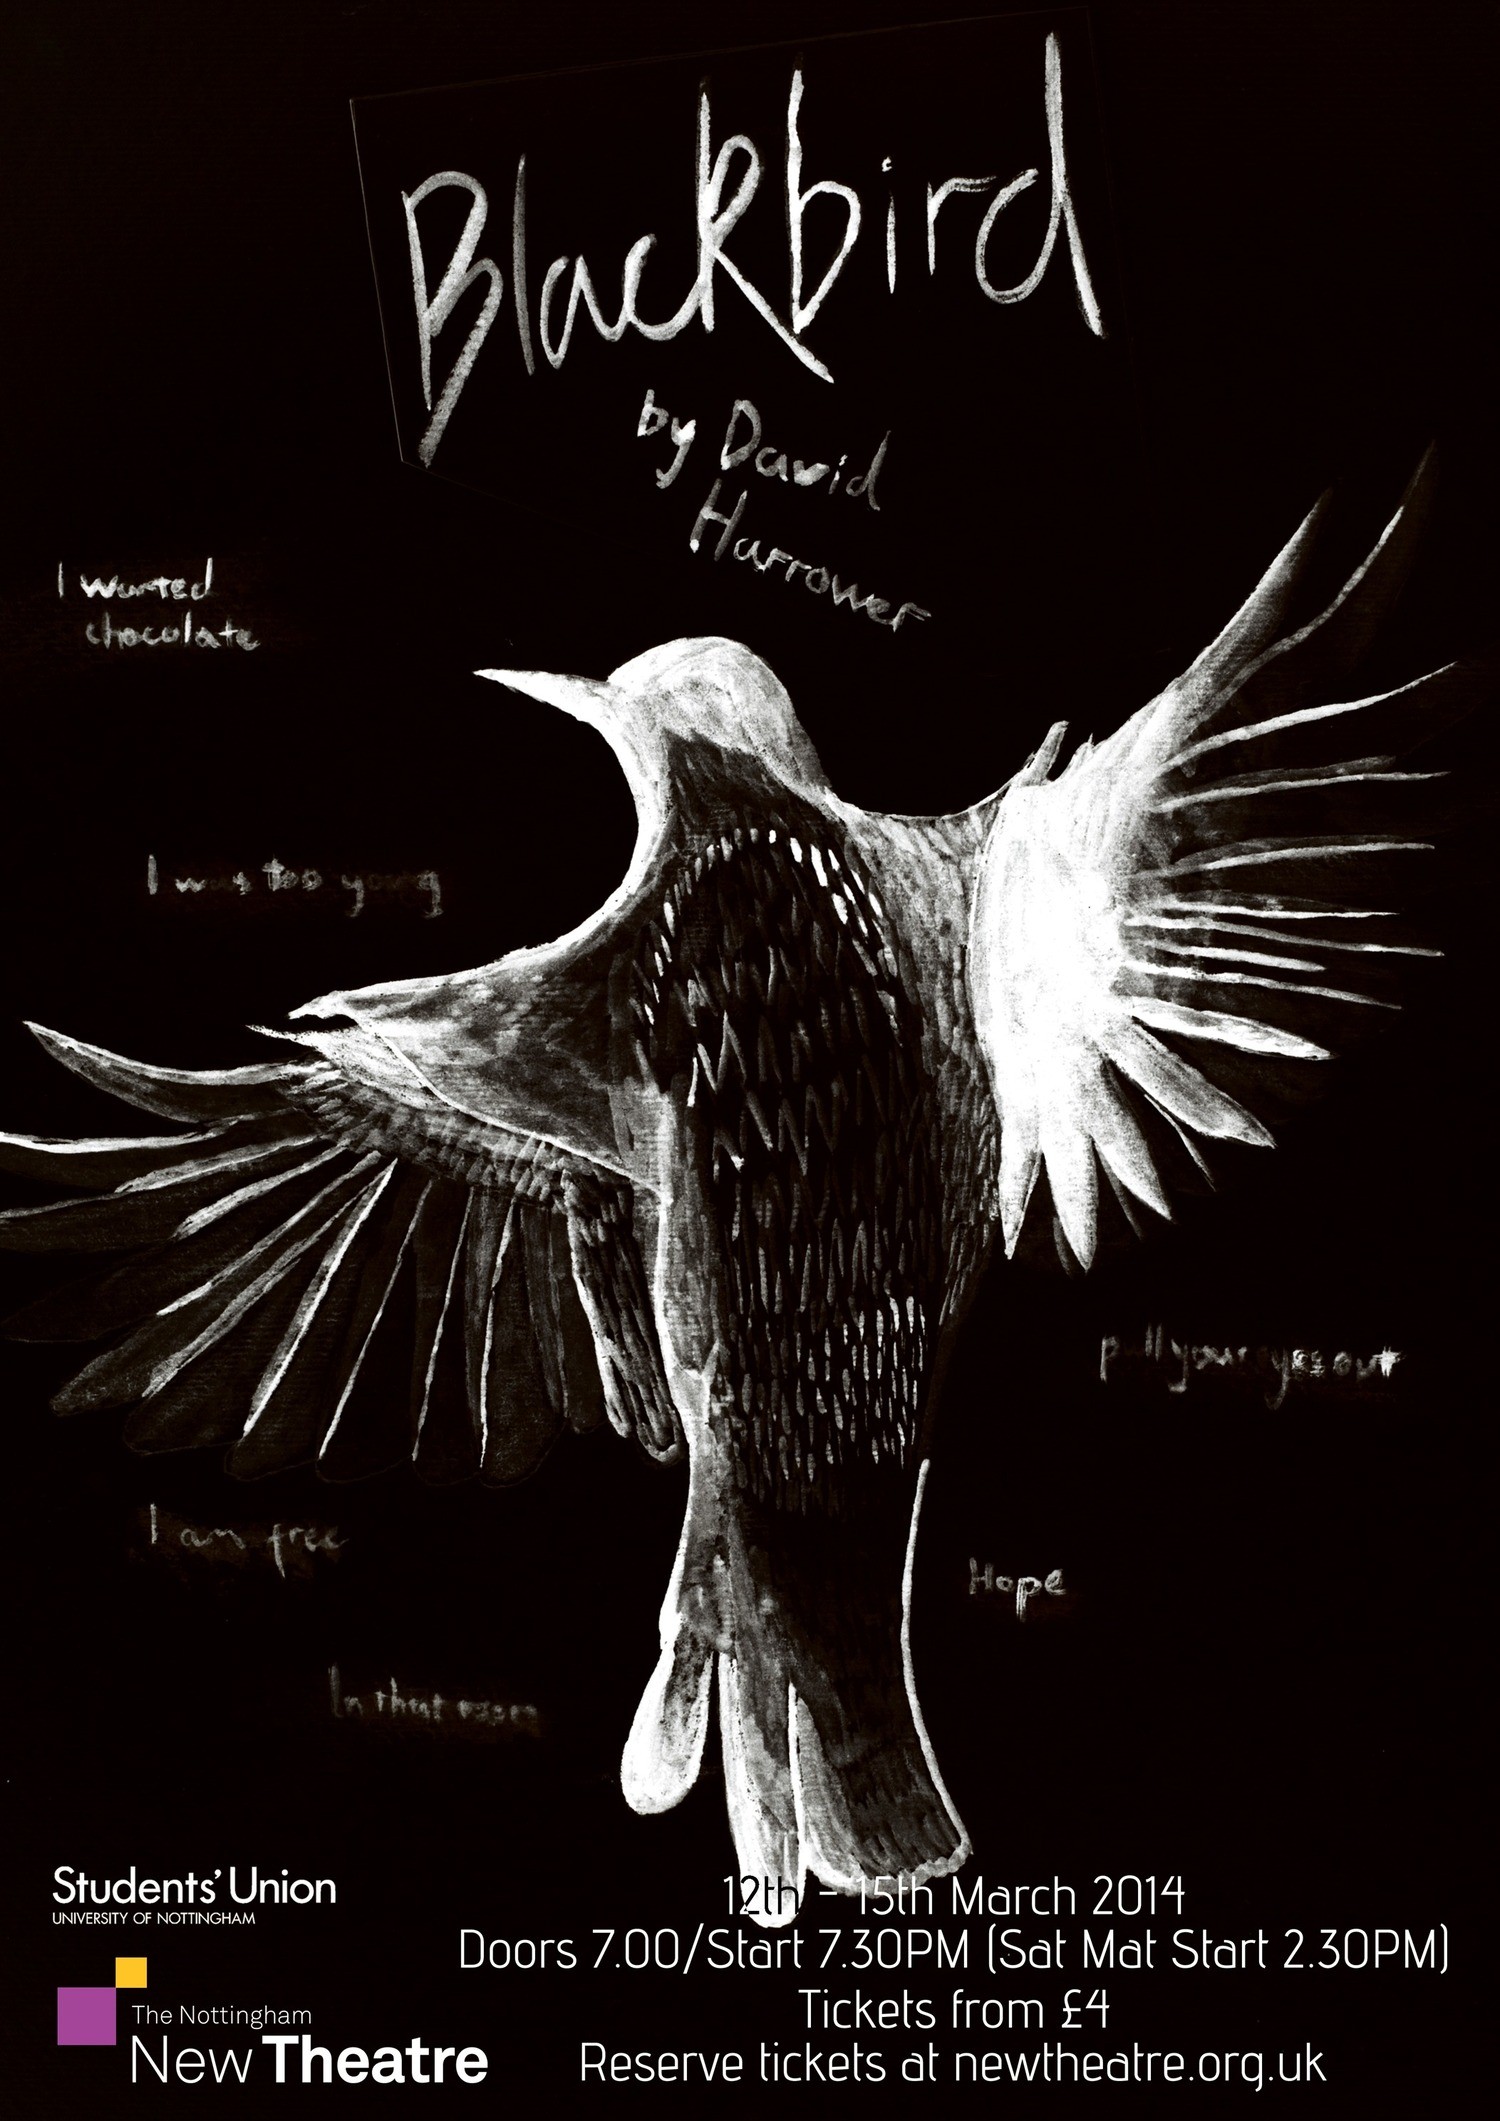 Blackbird
by David
Harrower
I wanted
chocolate
I was too young
pull your eyes out
I am free
Hope
In that room
Students' Union
UNIVERSITY OF NOTTINGHAM
The Nottingham
New Theatre
12th - 15th March 2014
Doors 7.00/Start 7.30PM (Sat Mat Start 2.30PM)
Tickets from £4
Reserve tickets at newtheatre.org.uk